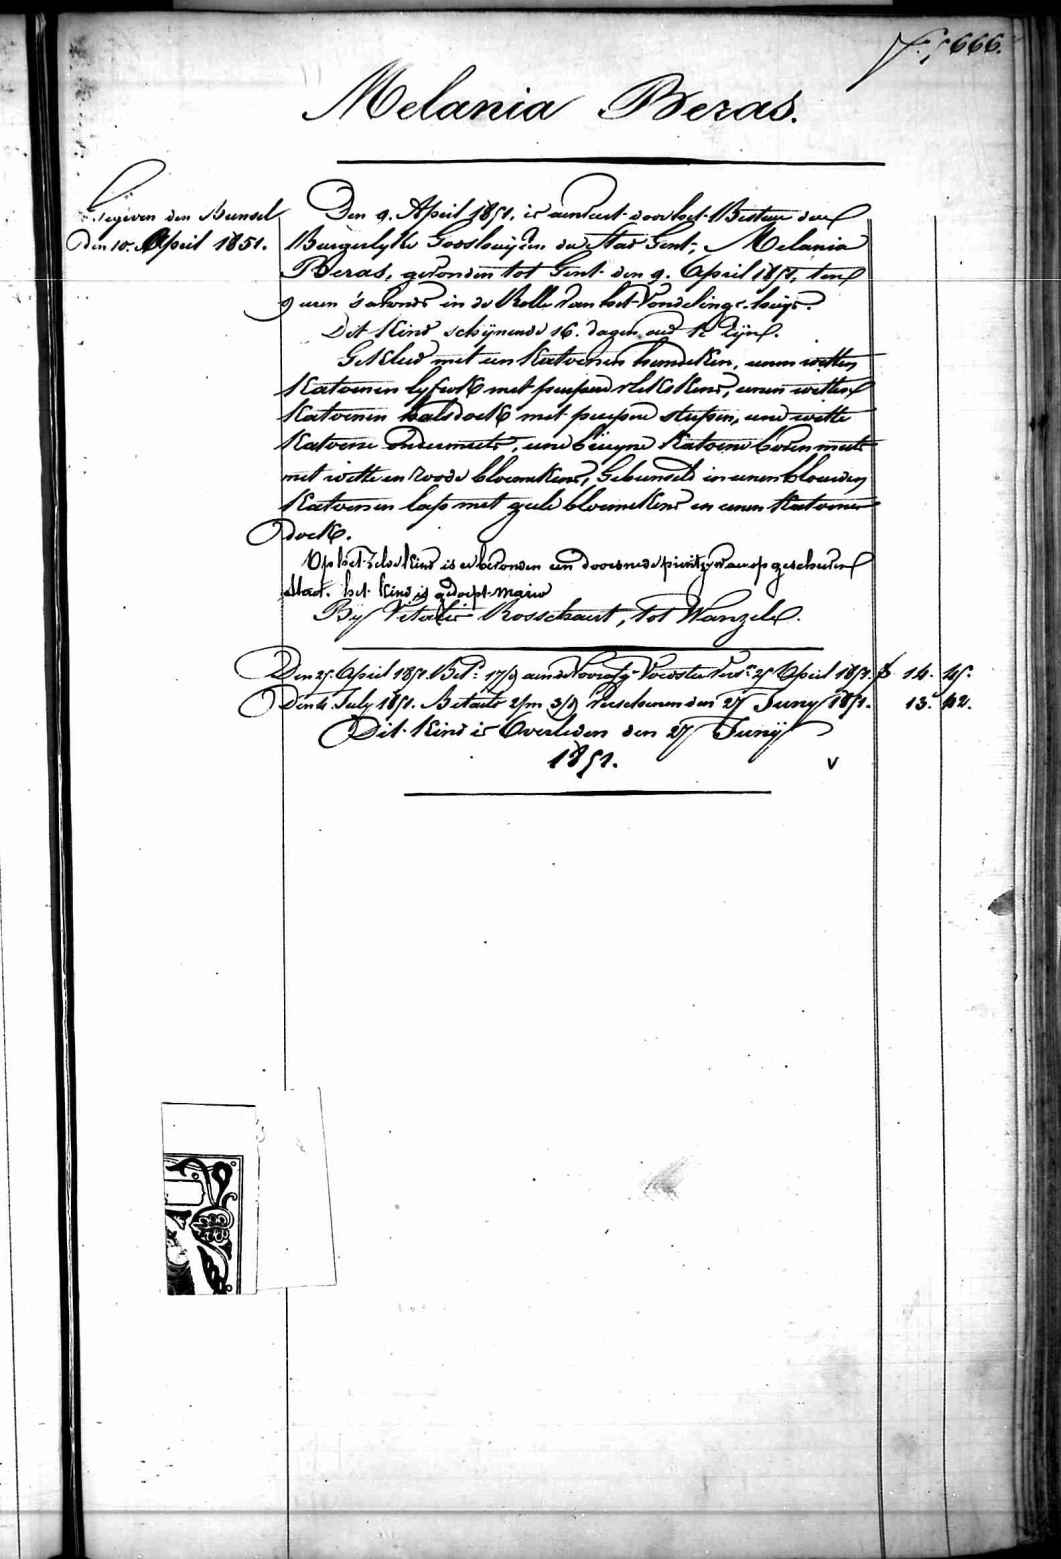 F.° 666.
Melania Beras.
Gegeven den Bunsel
den 10. April 1851.
Den 9. April 1851. is aenveert door het Bestuer der
Burgerlyke Godshuijzen der Stad Gent, Melania
Beras, gevonden tot Gent den 9. April 1851, ten
9 uren 's avonds in de Rolle van het Vondelings-huijs.
Dit kind schijnende 16. dagen oud te zijn.
Gekleed met een katoenen hemdeken, eenen witten
katoenen lyfrok met peirpere vlekskens, eenen witten
katoenen halsdoek met peirpere strepen, eene witte
katoene ondermuts, eene bruyne katoene bovenmuts
met witte en roode bloemekens, Gebunseld in eenen blauwen
katoenen lap met geele bloemekens en eenen katoenen
doek.
Op het zelve kind is er bevonden een doorsnede printzjen waer op geschreven
staet. het kind is gedoopt maria
By Vitalie Rosschaert, tot Wanzele.
Den 25. April 1851. Bet.d 17/d aen de voorafg. Voedster vers.n 25 April 1851. f 14. 45.
Den 4. July 1851. Betaelt 2/m 3/d verschenen den 27 Juny 1851. 13. 42.
Dit kind is Overleden den 27 Junij
1851. v